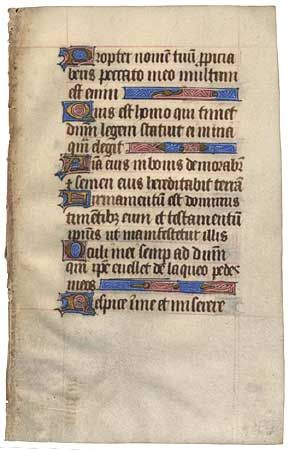 Propter nomen tuū ꝓpicia
beris peccato meo multum
est enim
Quis est homo qui timet
dnm̄ legem statuit ei in via
quā elegit
Aīa eius in bonis demorabit̄
⁊ semen eius hereditabit terrā
Firmamentū est dominus
timētibꝫ eum et testamentū
ipsius ut manifestetur illis
Oculi mei semꝑ ad dnm̄
qm̄ ipē euellet de laqueo pedes
meos
Respice ī me et miserere